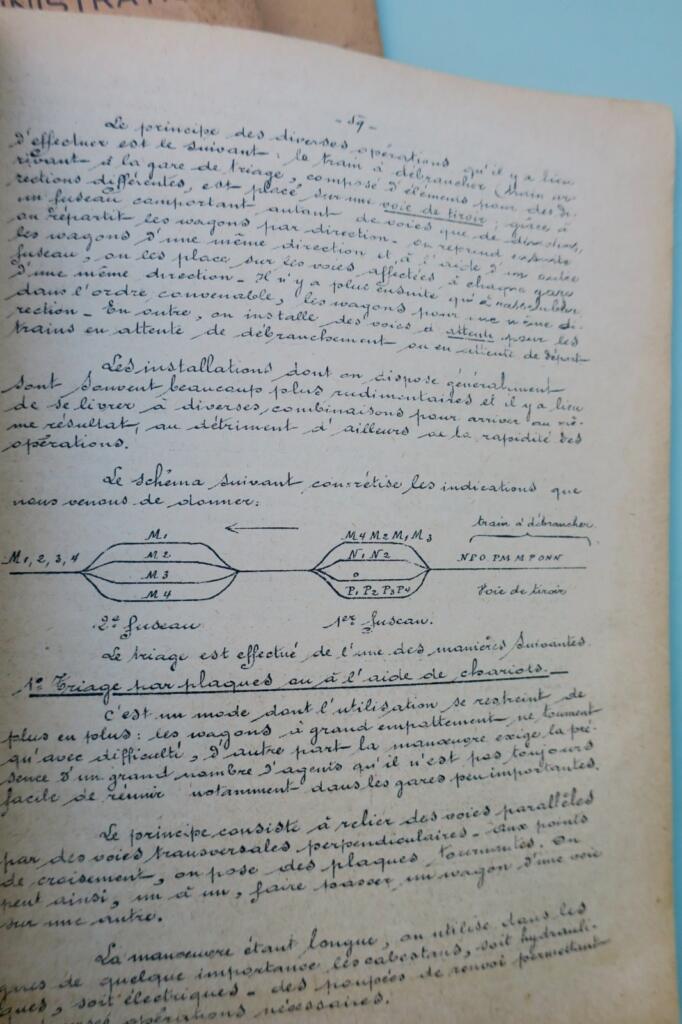 INISTRATI
- 59 -
Le principe des diverses opérations qu'il y a lieu
d'effectuer est le suivant : le train à débrancher (train ar-
rivant à la gare de triage, composé d'éléments pour des di-
rections différentes, est placé sur une voie de tiroir ; grâce à
un fuseau comportant autant de voies que de directions,
on répartit les wagons par direction - on reprend ensuite
les wagons d'une même direction et, à l'aide d'un autre
fuseau, on les place sur les voies affectées à chaque gare
d'une même direction - Il n'y a plus ensuite qu'à rassembler
dans l'ordre convenable, les wagons pour une même di-
rection - En outre, on installe des voies d'attente pour les
trains en attente de débranchement ou en attente de départ
Les installations dont on dispose généralement
sont souvent beaucoup plus rudimentaires et il y a lieu
de se livrer à diverses combinaisons pour arriver au mê-
me résultat, au détriment d'ailleurs de la rapidité des
opérations.
Le schéma suivant concrétise les indications que
nous venons de donner :
train à débrancher
M1 M4 M2 M1 M3
M1, 2, 3, 4 M2 N1 N2 NPO PMM PONN
M3 O
M4 P1 P2 P3 P4 Voie de tiroir
2e fuseau 1er fuseau.
Le triage est effectué de l'une des manières suivantes.
1° Triage par plaques ou à l'aide de chariots. -
C'est un mode dont l'utilisation se restreint de
plus en plus : les wagons à grand empattement ne tournent
qu'avec difficulté, d'autre part la manœuvre exige la pré-
sence d'un grand nombre d'agents qu'il n'est pas toujours
facile de réunir notamment dans les gares peu importantes.
Le principe consiste à relier des voies parallèles
par des voies transversales perpendiculaires - aux points
de croisement, on pose des plaques tournantes. On
peut ainsi, un à un, faire passer un wagon d'une voie
sur une autre.
La manœuvre étant longue, on utilise dans les
gares de quelque importance les cabestans, soit hydrauli-
ques, soit électriques - des poupées de renvoi permettent
opérations nécessaires.